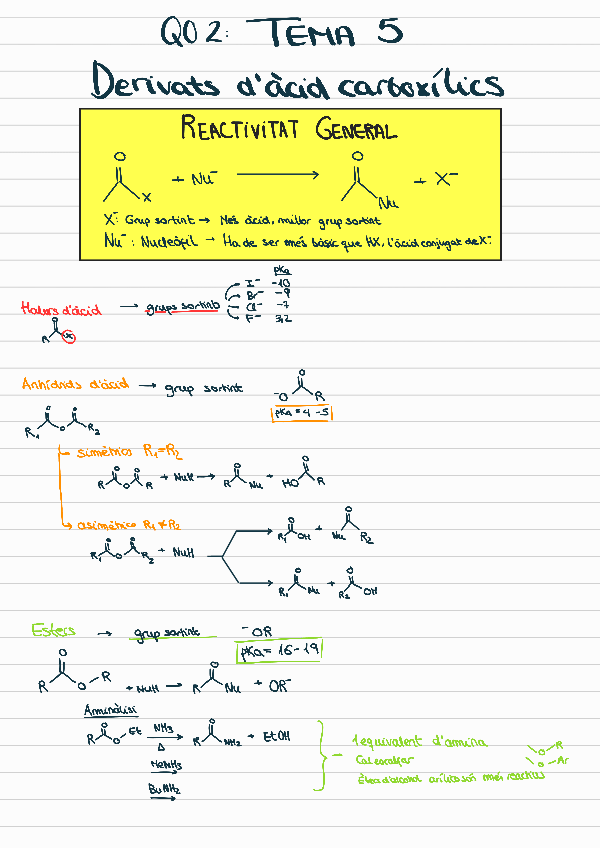 QO 2: TEMA 5
Derivats d'àcid carboxílics
REACTIVITAT GENERAL
O X + Nu⁻ → O Nu + X⁻
X⁻: Grup sortint → Més àcid, millor grup sortint
Nu⁻: Nucleòfil → Ha de ser més bàsic que HX, l'àcid conjugat de X⁻
pKa
I⁻ -10
Br⁻ -9
Cl⁻ -7
F⁻ 3,2
Halurs d'àcid → grups sortints
O R X
Anhídrids d'àcid → grup sortint
O ⁻O R
pKa = 4-5
O O R₁ O R₂
simètrics R₁=R₂
O O R O R + NuH → O R Nu + O HO R
asimètrics R₁≠R₂
O O R₁ O R₂ + NuH
O R₁ OH + O Nu R₂
O R₁ Nu + O R₂ OH
Esters → grup sortint ⁻OR
pKa = 16-19
O R O R + NuH → O R Nu + OR⁻
Aminòlisi
O R O Et NH₃ Δ → O R NH₂ + EtOH
MeNH₂
BuNH₂
1 equivalent d'amina
Cal escalfar
Èters d'alcohol arílicos són més reactius
O R
O Ar